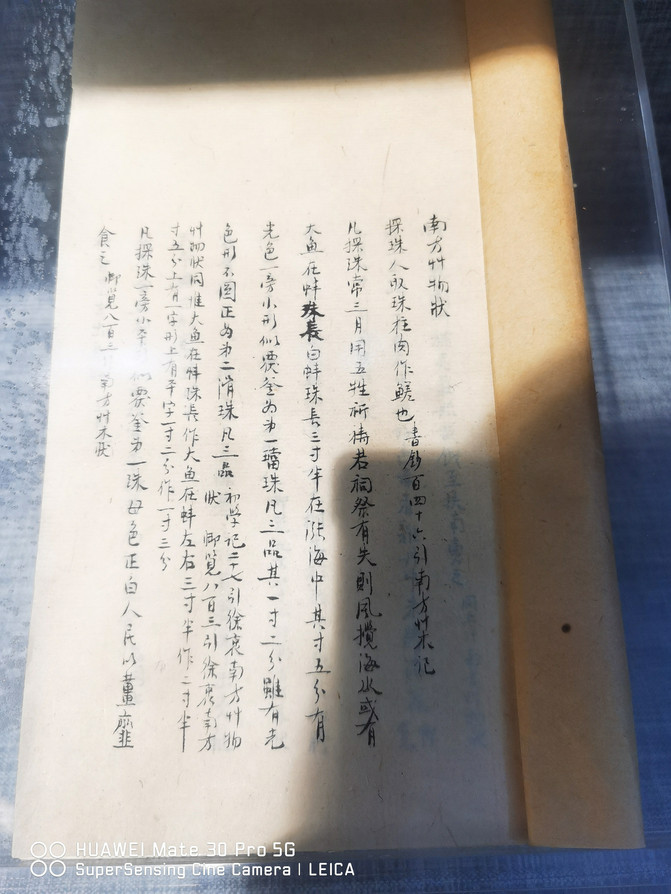 南方艸物狀
採珠人取珠柱肉作鱃也 書鈔百四十六引南方艸木記
凡採珠常三月用五牲祈禱若祠祭有失則風攪海水或有
大魚在蚌珠長白蚌珠長三寸半在漲海中其寸五分有
光色一旁小形似覆釜為第一璫珠凡三品其一寸二分雖有光
色形不圓正為第二滑珠凡三品 初學記二十七引徐衷南方艸物
狀 御覽八百三引徐衷南方
艸物狀同惟大魚在蚌珠長作大魚在蚌左右三寸半作二寸半
寸五分上有一字形上有平字一寸二分作一寸三分
凡採珠一旁小平 似覆釜第一珠母色正白人民以薑齏
食之 御覽八百三 南方艸木狀
HUAWEI Mate 30 Pro 5G
SuperSensing Cine Camera | LEICA